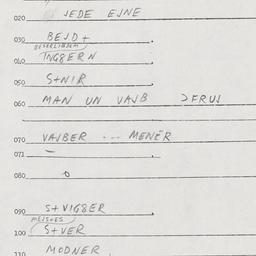 020 JEDE EJNE
030 BEJD+
040 INGBERN
050 S+NIR
060 MAN UN VAJB >FRUJ
070 VAJBER --- MENER
071 —
080 o
090 S+VIGBER
100 S+VER
110 MODNER